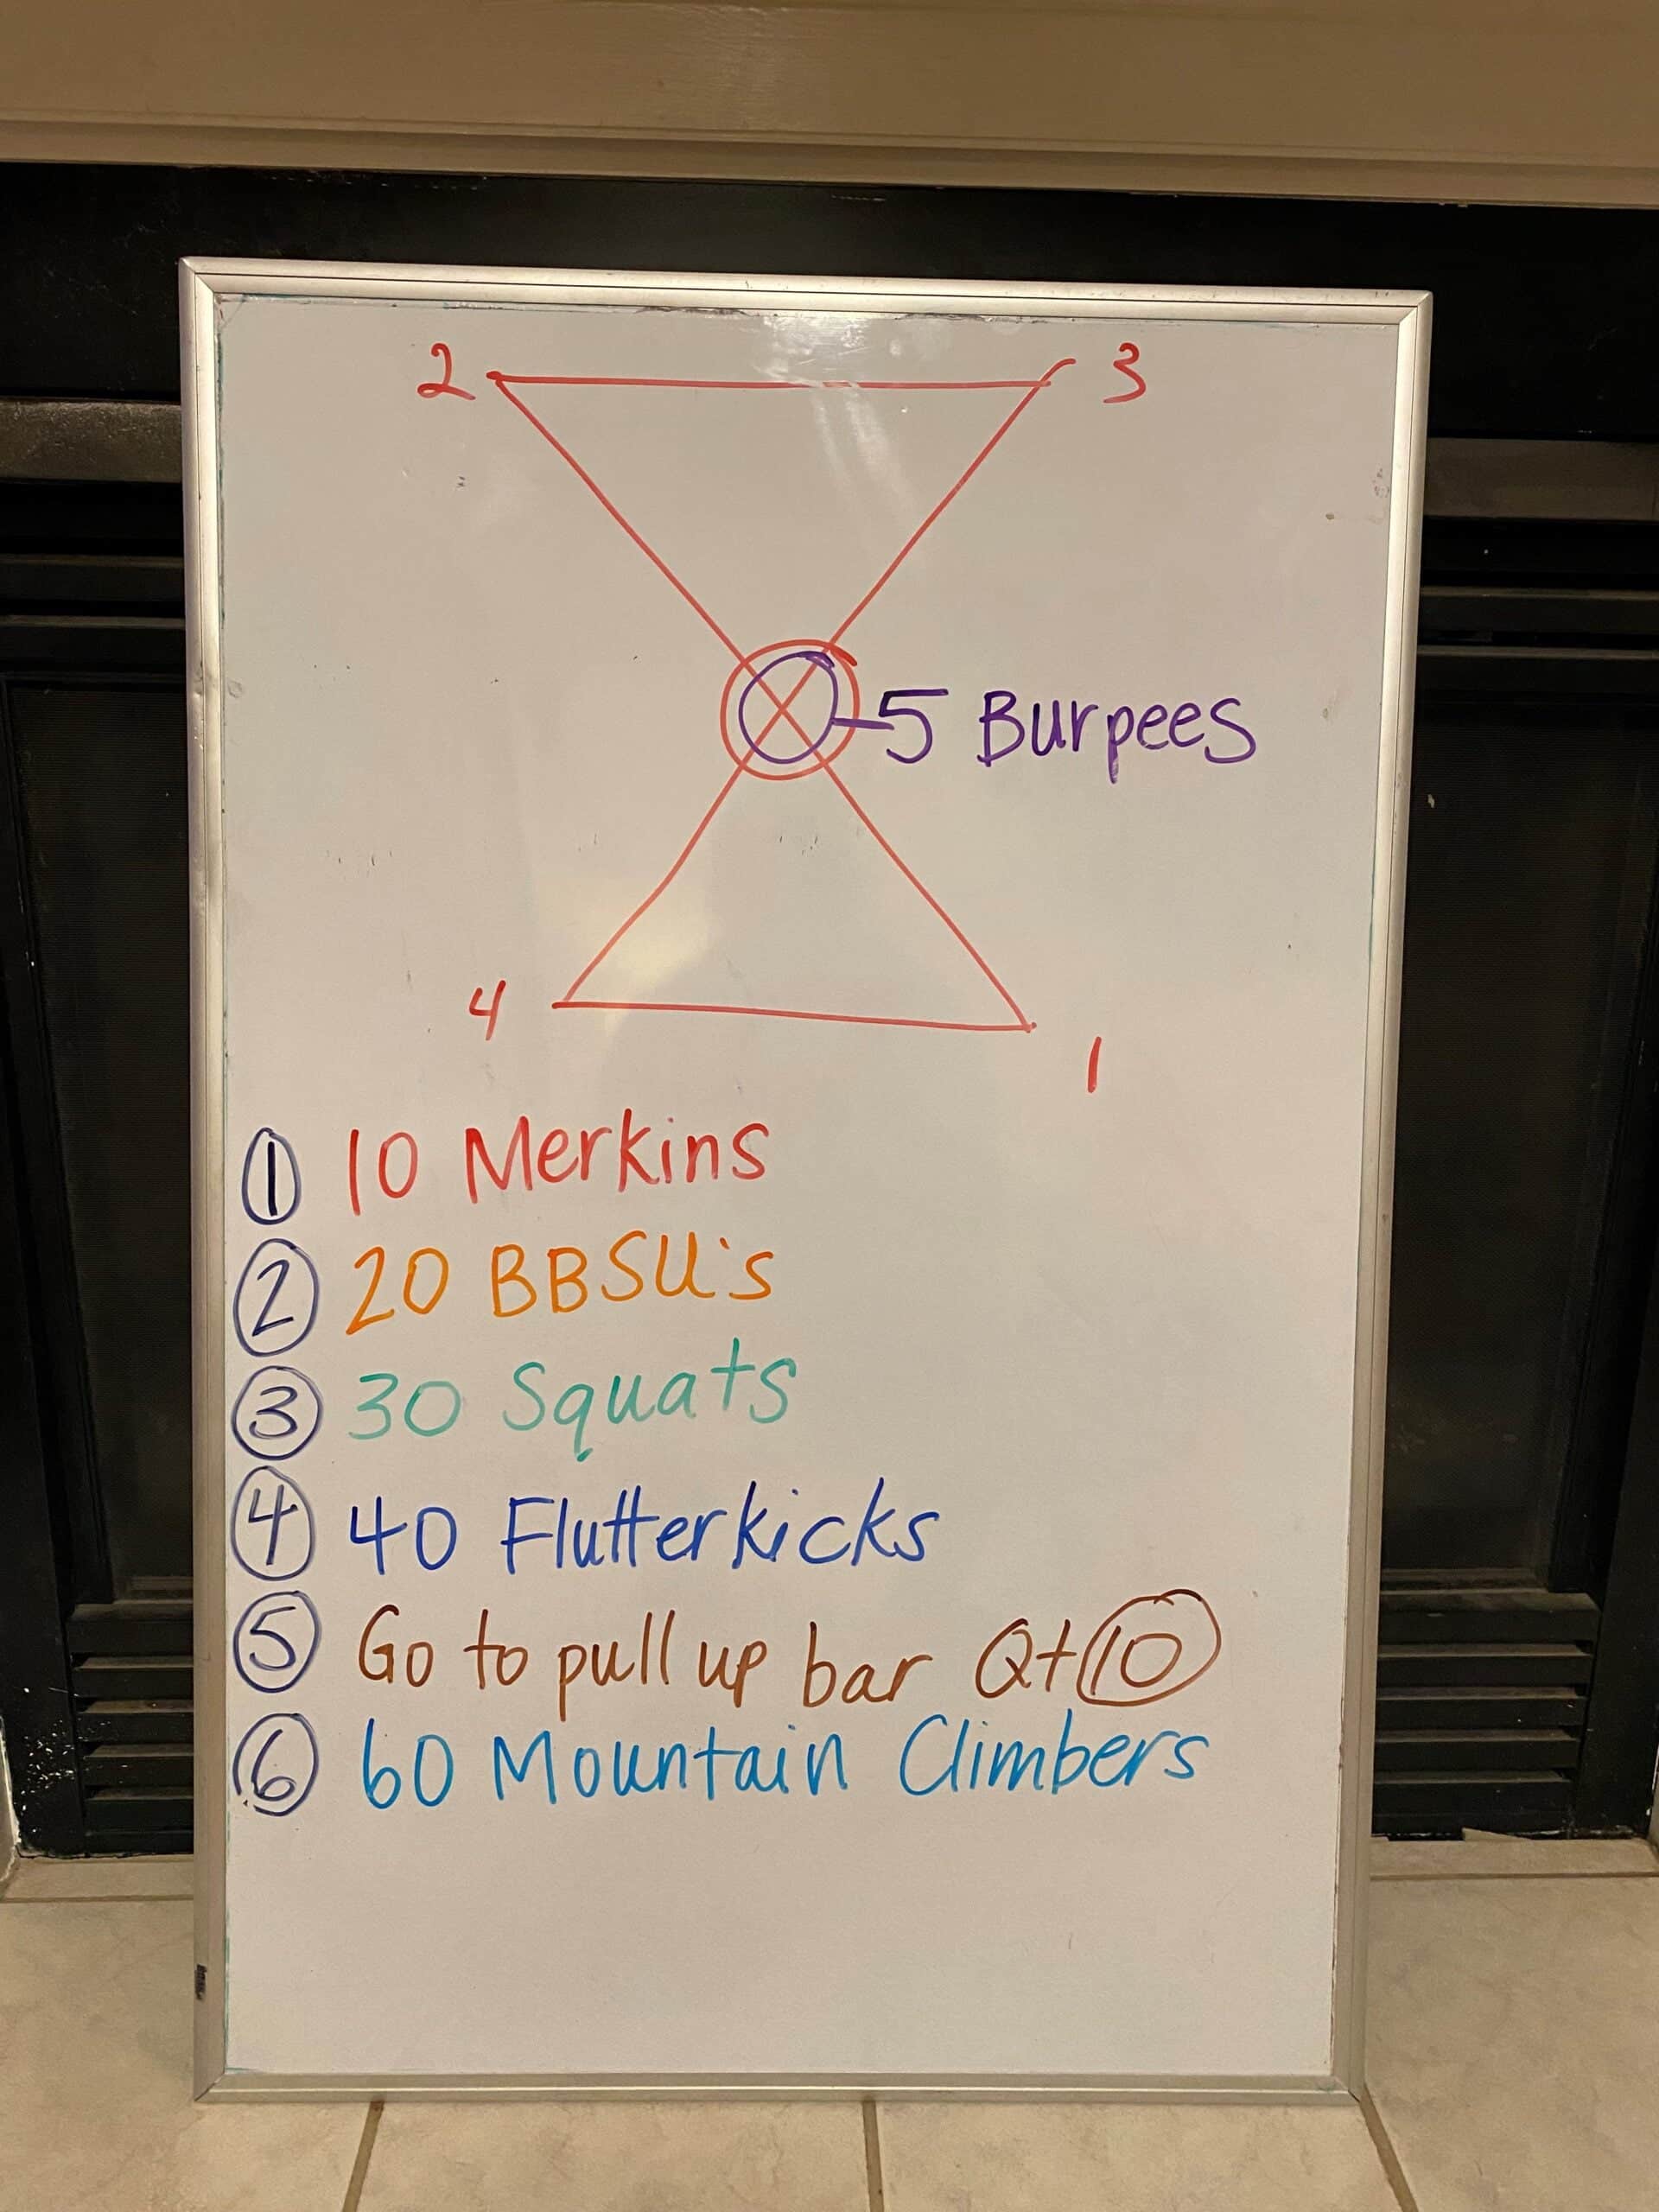 2 3
5 Burpees
4 1
① 10 Merkins
② 20 BBSU's
③ 30 Squats
④ 40 Flutterkicks
⑤ Go to pull up bar Qt 10
⑥ 60 Mountain Climbers